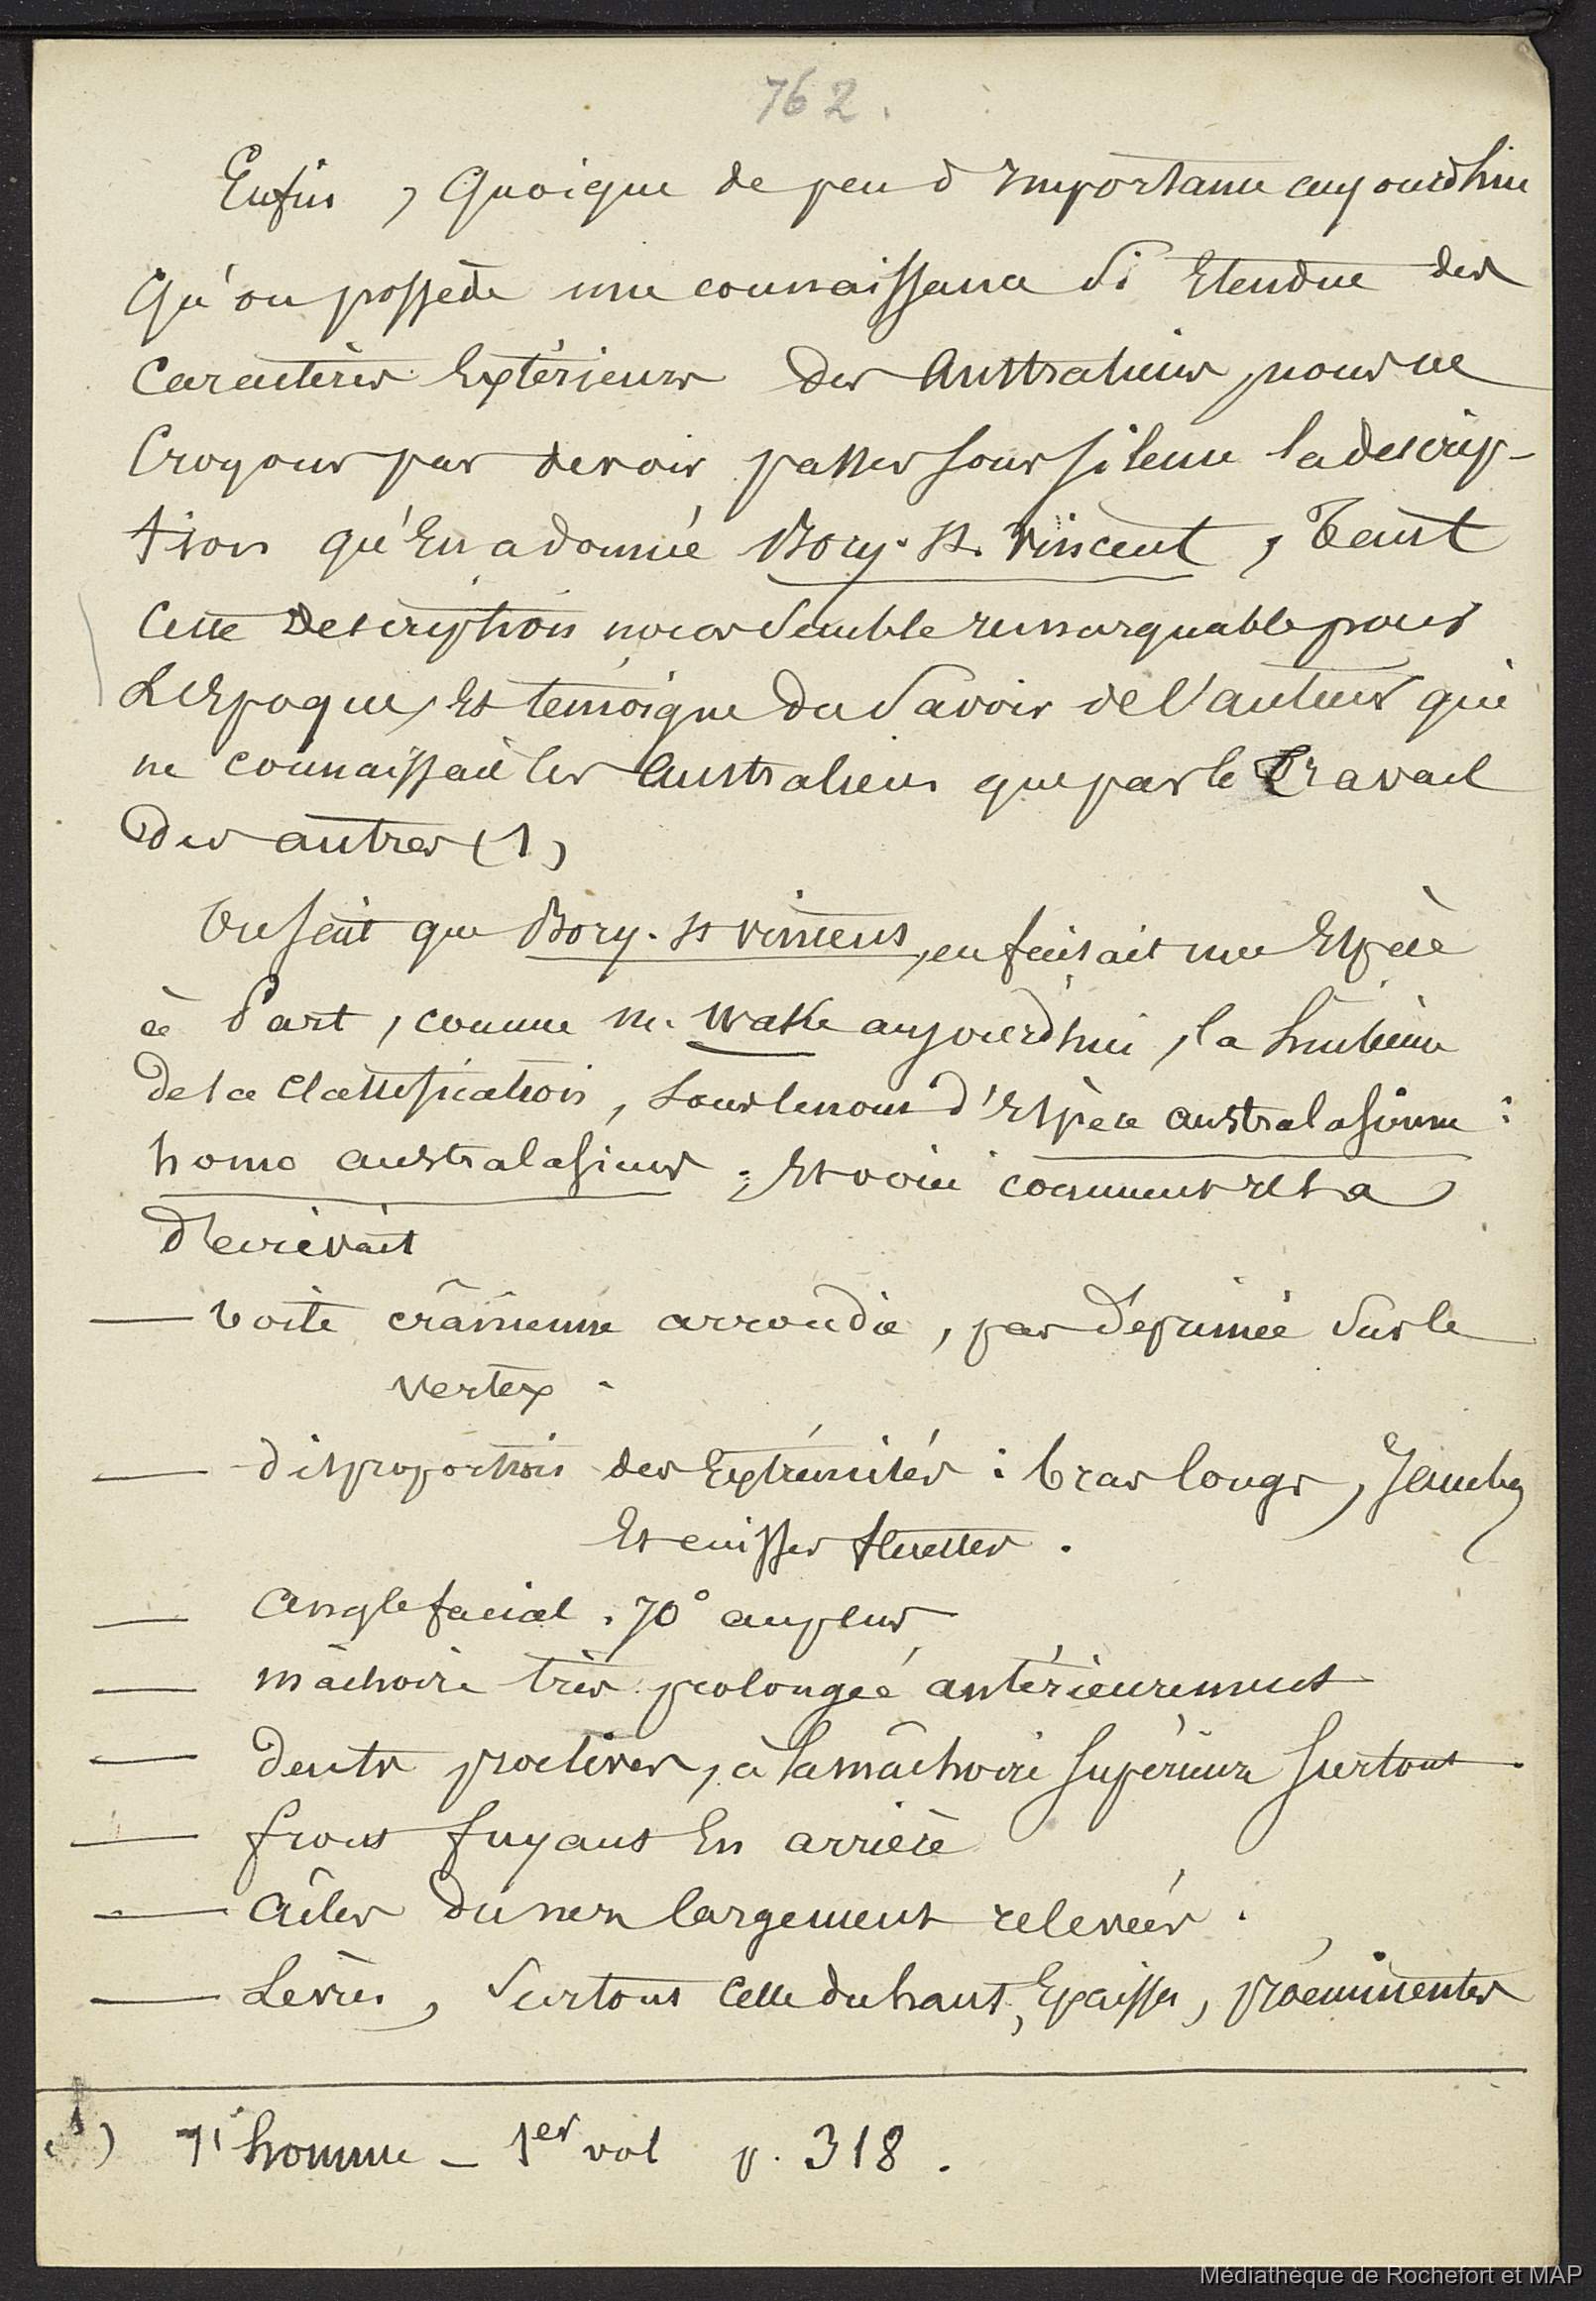 762.
Enfin, Quoique de peu d'importance aujourdhui
Qu'on possède une connaissance si Etendue des
Caractères Extérieurs des Australiens, nous ne
Croyons pas devoir passer sous silence la descrip-
tion qu'En a donnée Bory-St. Vincent, Tant
Cette Description nous semble remarquable pour
L'Epoque, Et témoigne du Savoir de l'auteur qui
ne connaissait les Australiens que par le Travail
Des autres (1)
On sait que Bory-St Vincent, en faisait une Espèce
à Part, comme M. Wake aujourd'hui, la huitième
de sa Classification, sous le nom d'Espèce australasienne :
homo australasicus ; Et voici comment il la
décrivait
— boite crânienne arrondie, pas déprimée sur le
vertex.
— disproportion des Extrémités : bras longs, Jambes
Et cuisses fluettes.
— Angle facial. 70° au plus
— mâchoire très prolongée antérieurement
— dents proclives, à la mâchoire supérieure surtout.
— front fuyant En arrière
— Ailes du nez largement relevées.
— Lèvres, surtout Celle du haut, Epaisses, proéminentes
(1) l'homme — 1er vol p. 318.
Médiathèque de Rochefort et MAP